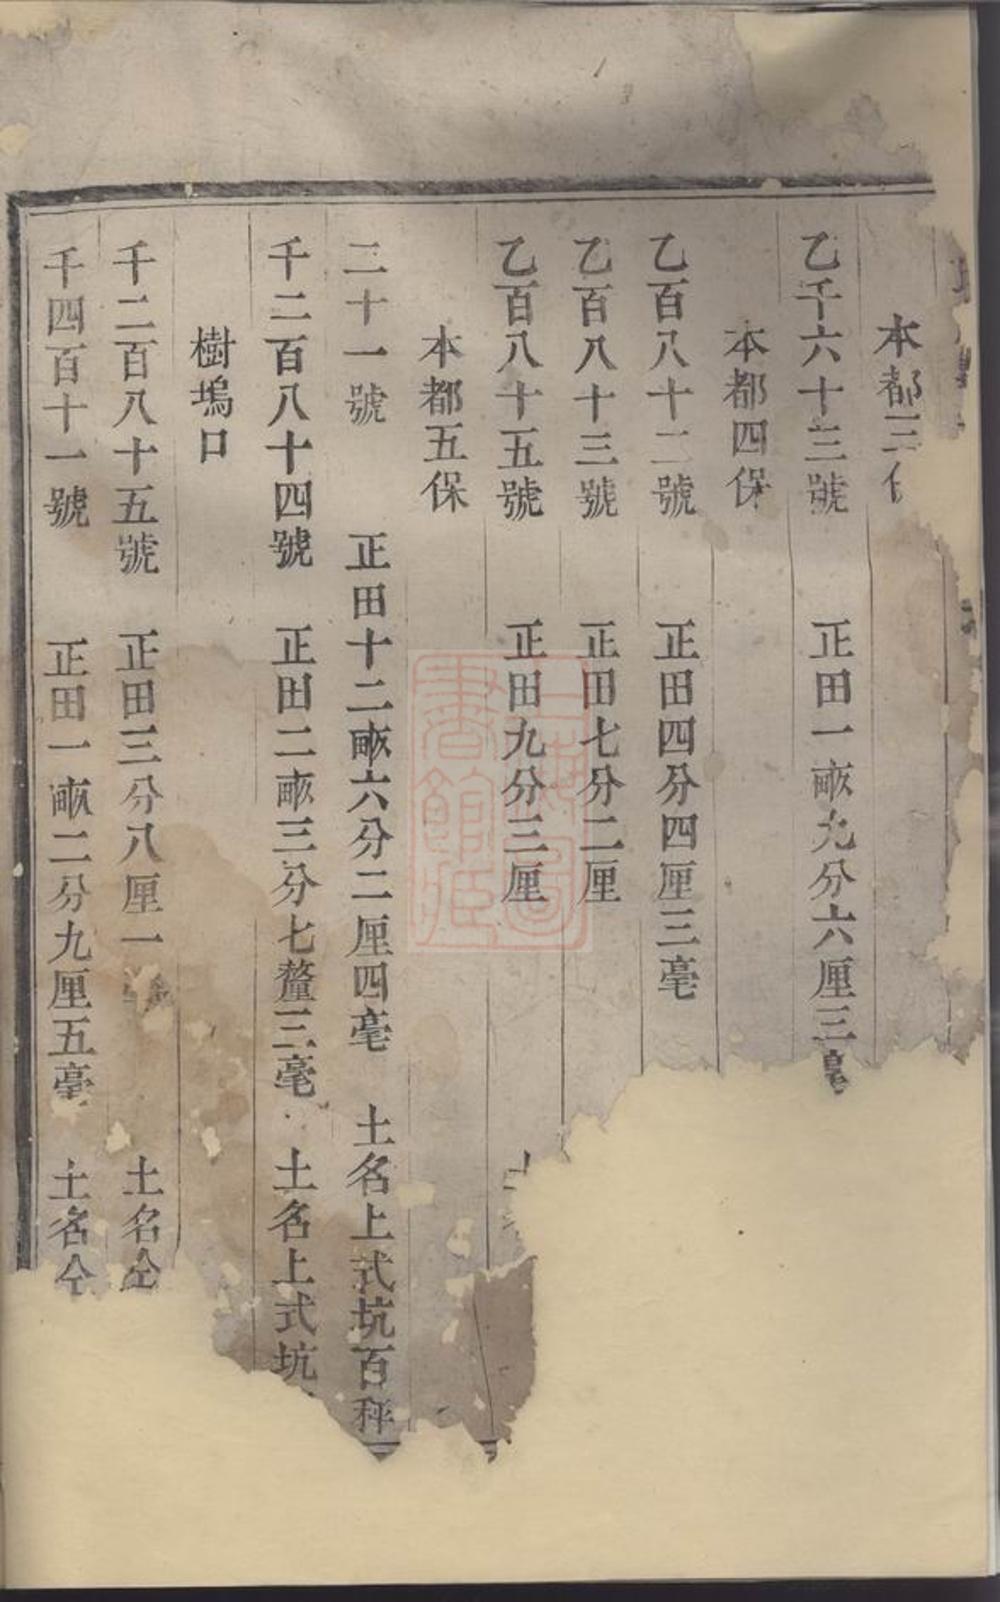 本都三
乙千六十三號 正田一畝九分六厘三毫
本都四保
乙百八十二號 正田四分四厘三毫
乙百八十三號 正田七分二厘
乙百八十五號 正田九分三厘
本都五保
二十一號 正田十二畝六分二厘四毫 土名上式坑百秤
千二百八十四號 正田二畝三分七釐三毫 土名上式坑
樹塢口
千二百八十五號 正田三分八厘一 土名仝
千四百十一號 正田一畝二分九厘五毫 土名仝